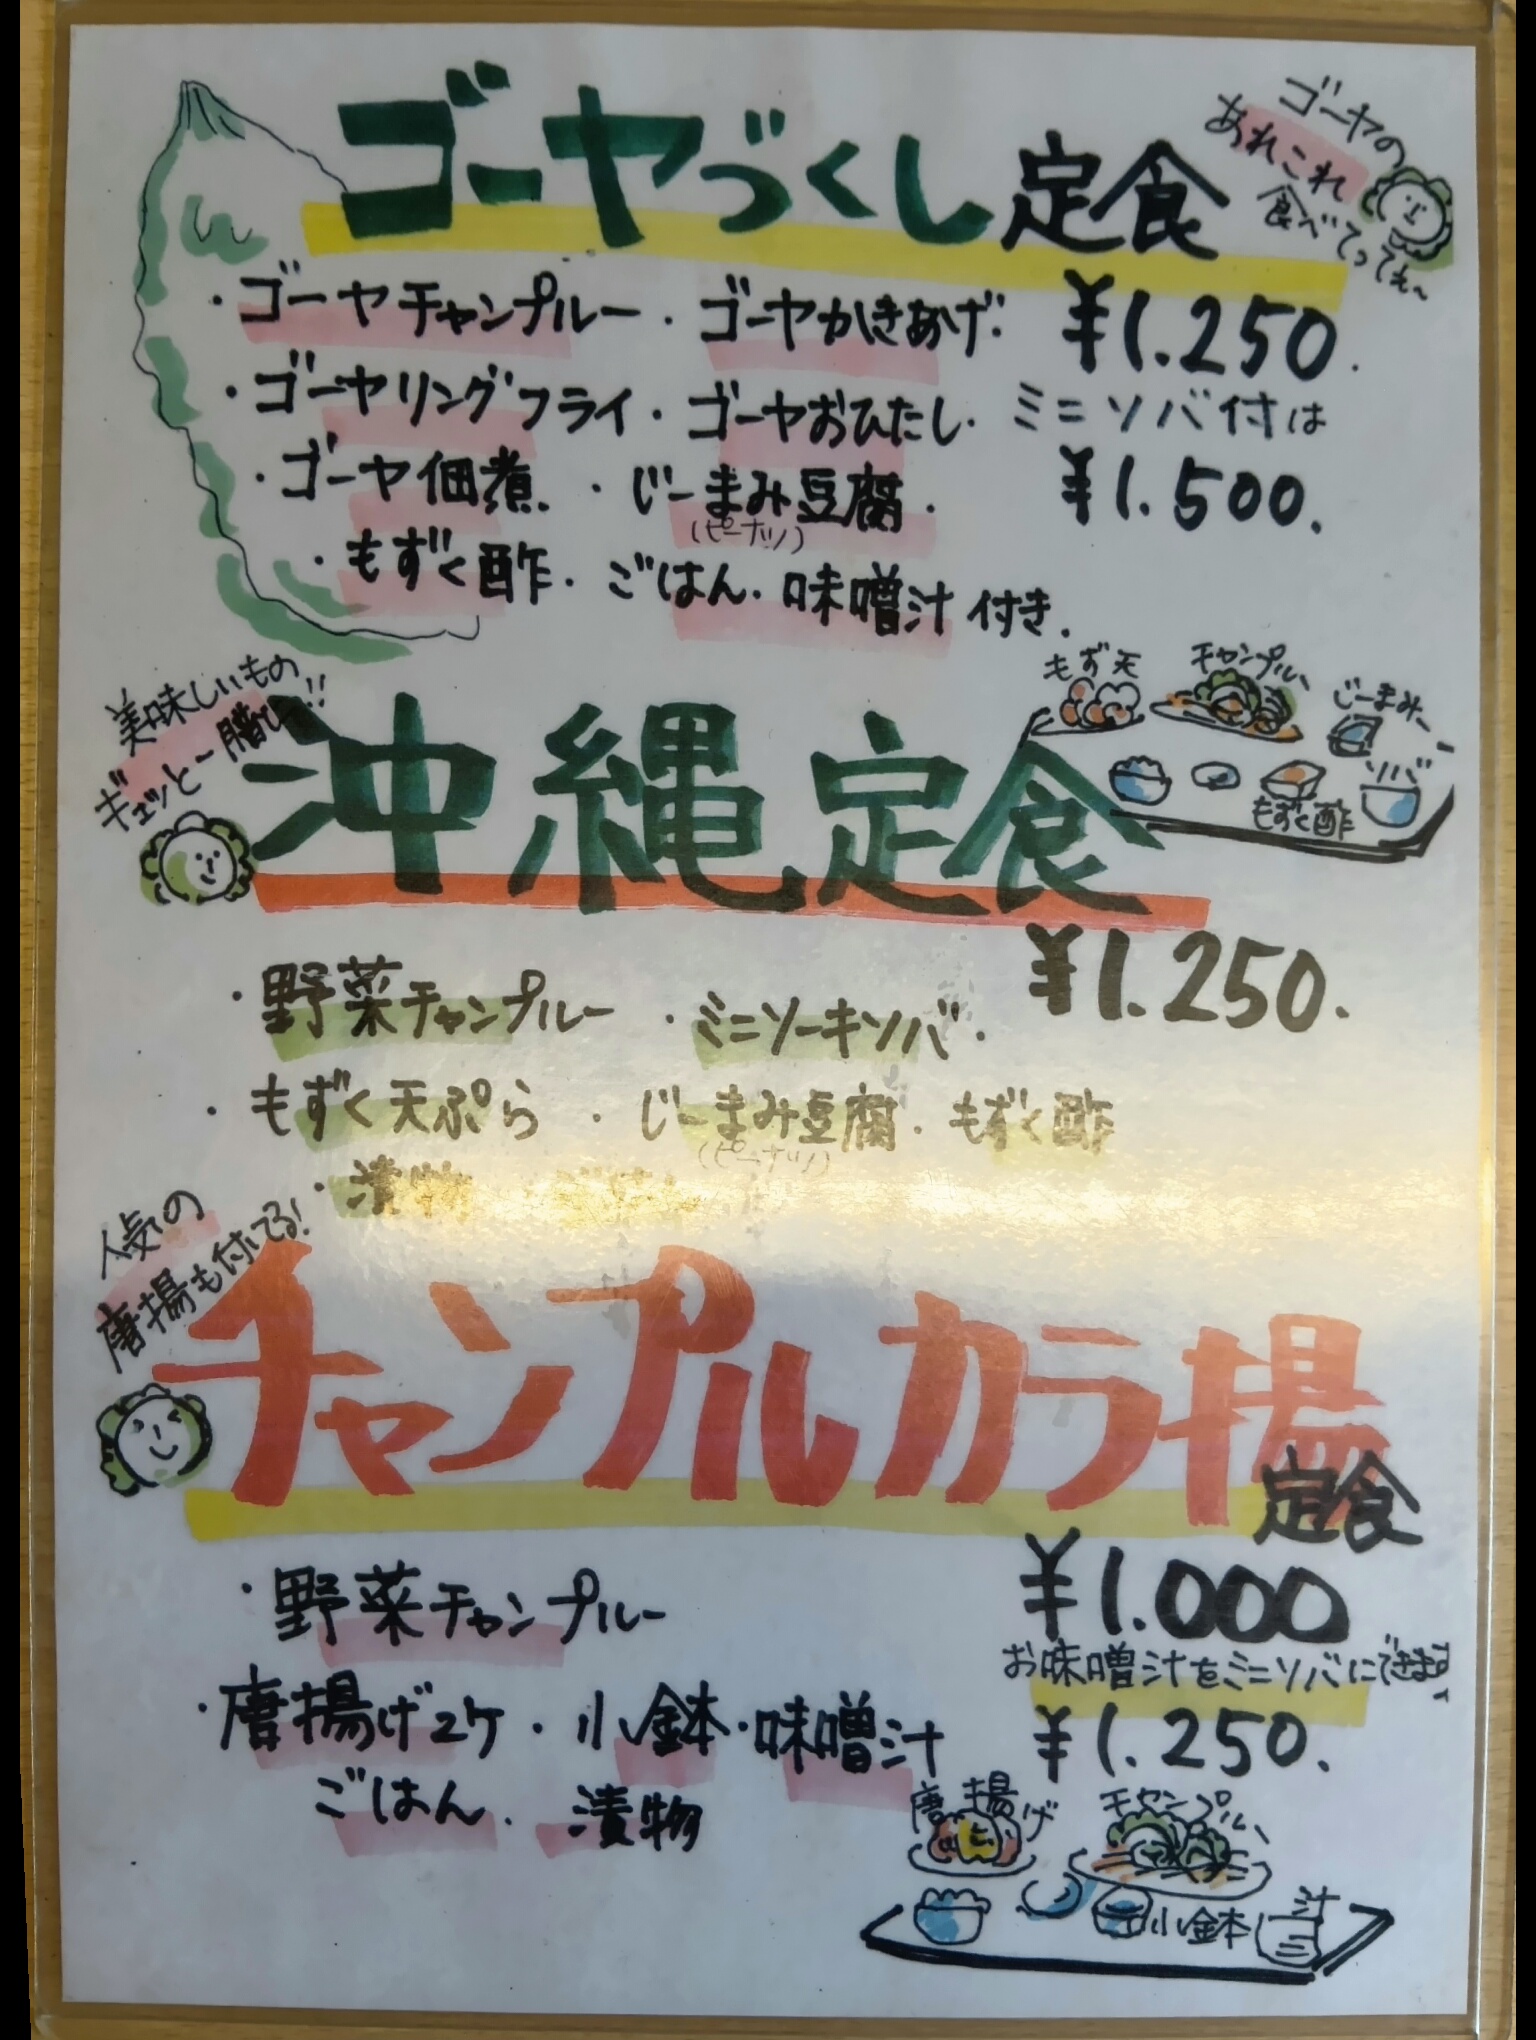 ゴーヤづくし定食
ゴーヤの
あれこれ
食べてってね~
・ゴーヤチャンプルー・ゴーヤかきあげ・
¥1.250.
・ゴーヤリングフライ・ゴーヤおひたし・
ミニソバ付は
・ゴーヤ佃煮.・じーまみ豆腐.
(ピーナツ)
¥1.500.
・もずく酢.ごはん.味噌汁付き.
美味しいもの
ギュッと一膳に!!
沖縄定食
もず天
チャンプルー
じーまみー
ソバ
もずく酢
¥1.250.
・野菜チャンプルー・ミニソーキソバ・
・もずく天ぷら・じーまみ豆腐.もずく酢
(ピーナツ)
・漬物
人気の
唐揚も付いてる!
チャンプルカラ揚
定食
¥1.000
・野菜チャンプルー
お味噌汁をミニソバにできます
・唐揚げ2ケ・小鉢・味噌汁
¥1.250.
ごはん.漬物
唐揚げ
チャンプルー
小鉢
汁